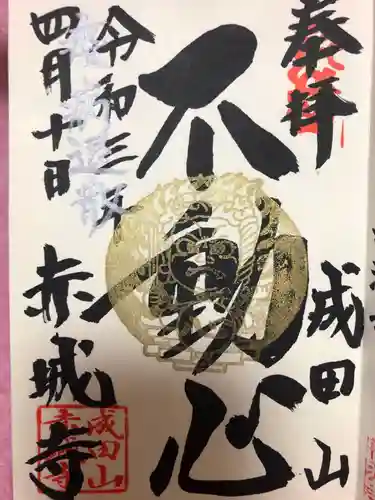 奉拝
成田山
不動心
令和三
四月十日
赤城寺
成田山